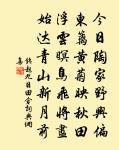 今日陶家野興偏
東籬黃菊映秋田
浮雲暝鳥飛將盡
始達青山新月前
錢起九日田舍詞典網
集